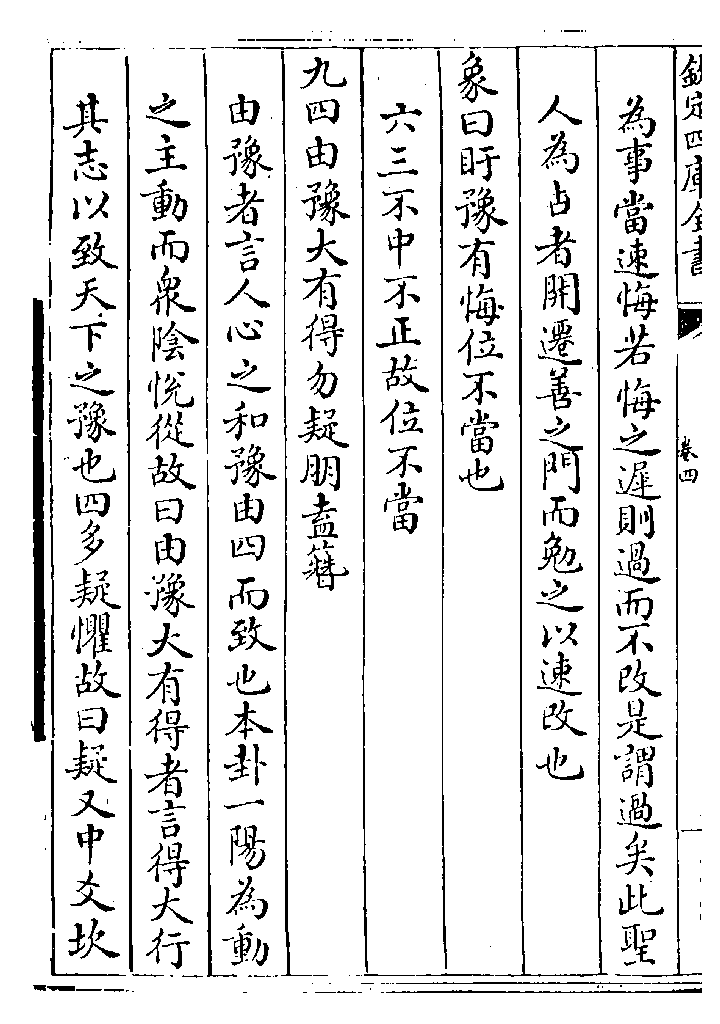 欽定四庫全書
卷四
為事當速悔若悔之遲則過而不改是謂過矣此聖
人為占者開遷善之門而勉之以速改也
象曰盱豫有悔位不當也
六三不中不正故位不當
九四由豫大有得勿疑朋盍簪
由豫者言人心之和豫由四而致也本卦一陽為動
之主動而衆陰悅從故曰由豫大有得者言得大行
其志以致天下之豫也四多疑懼故曰疑又中爻坎